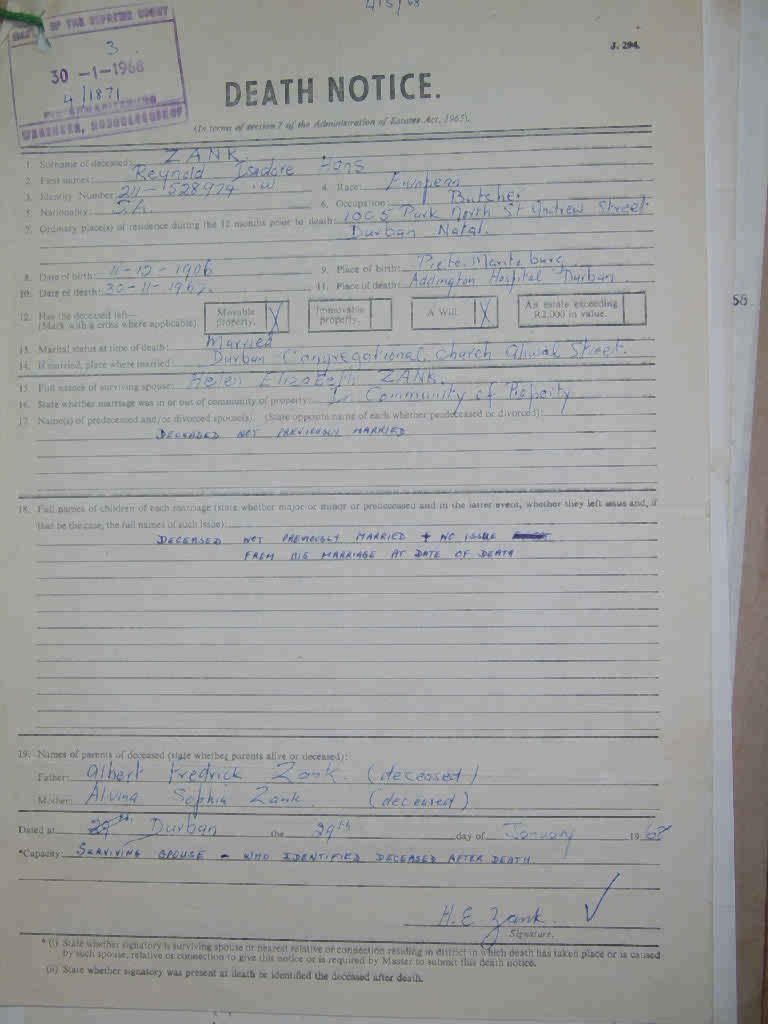 4/5/68
J. 294.
MASTER OF THE SUPREME COURT
3
30 -1-1968
4/1871
PIETERMARITZBURG
WEESHEER, HOOGGEREGSHOF
DEATH NOTICE.
(In terms of section 7 of the Administration of Estates Act, 1965).
1. Surname of deceased: ZANK.
2. First names: Reynold Isadore Hans
3. Identity Number: 211-528979 W 4. Race: European
5. Nationality: S.A. 6. Occupation: Butcher
7. Ordinary place(s) of residence during the 12 months prior to death: 1005 Park North St Andrew Street
Durban Natal.
8. Date of birth: 11-12-1906 9. Place of birth: Pietermaritzburg
10. Date of death: 30-11-1967. 11. Place of death: Addington Hospital Durban
12. Has the deceased left— (Mark with a cross where applicable) Movable property. X Immovable property. A Will. X An estate exceeding R2,000 in value.
13. Marital status at time of death: Married
14. If married, place where married: Durban Congregational Church Aliwal Street.
15. Full names of surviving spouse: Helen Elizabeth ZANK.
16. State whether marriage was in or out of community of property: In Community of Property
17. Name(s) of predeceased and/or divorced spouse(s). (State opposite name of each whether predeceased or divorced):
DECEASED NOT PREVIOUSLY MARRIED
18. Full names of children of each marriage (state whether major or minor or predeceased and in the latter event, whether they left issue and, if
that be the case, the full names of such issue):
DECEASED NOT PREVIOUSLY MARRIED + NO ISSUE
FROM HIS MARRIAGE AT DATE OF DEATH
19. Names of parents of deceased (state whether parents alive or deceased):
Father: Albert Fredrick Zank. (deceased)
Mother: Alvina Sophia Zank. (deceased)
Dated at 29th Durban the 29th day of January 1968
*Capacity: SURVIVING SPOUSE - WHO IDENTIFIED DECEASED AFTER DEATH.
H.E Zank.
Signature.
* (i) State whether signatory is surviving spouse or nearest relative or connection residing in district in which death has taken place or is caused
by such spouse, relative or connection to give this notice or is required by Master to submit this death notice.
(ii) State whether signatory was present at death or identified the deceased after death.